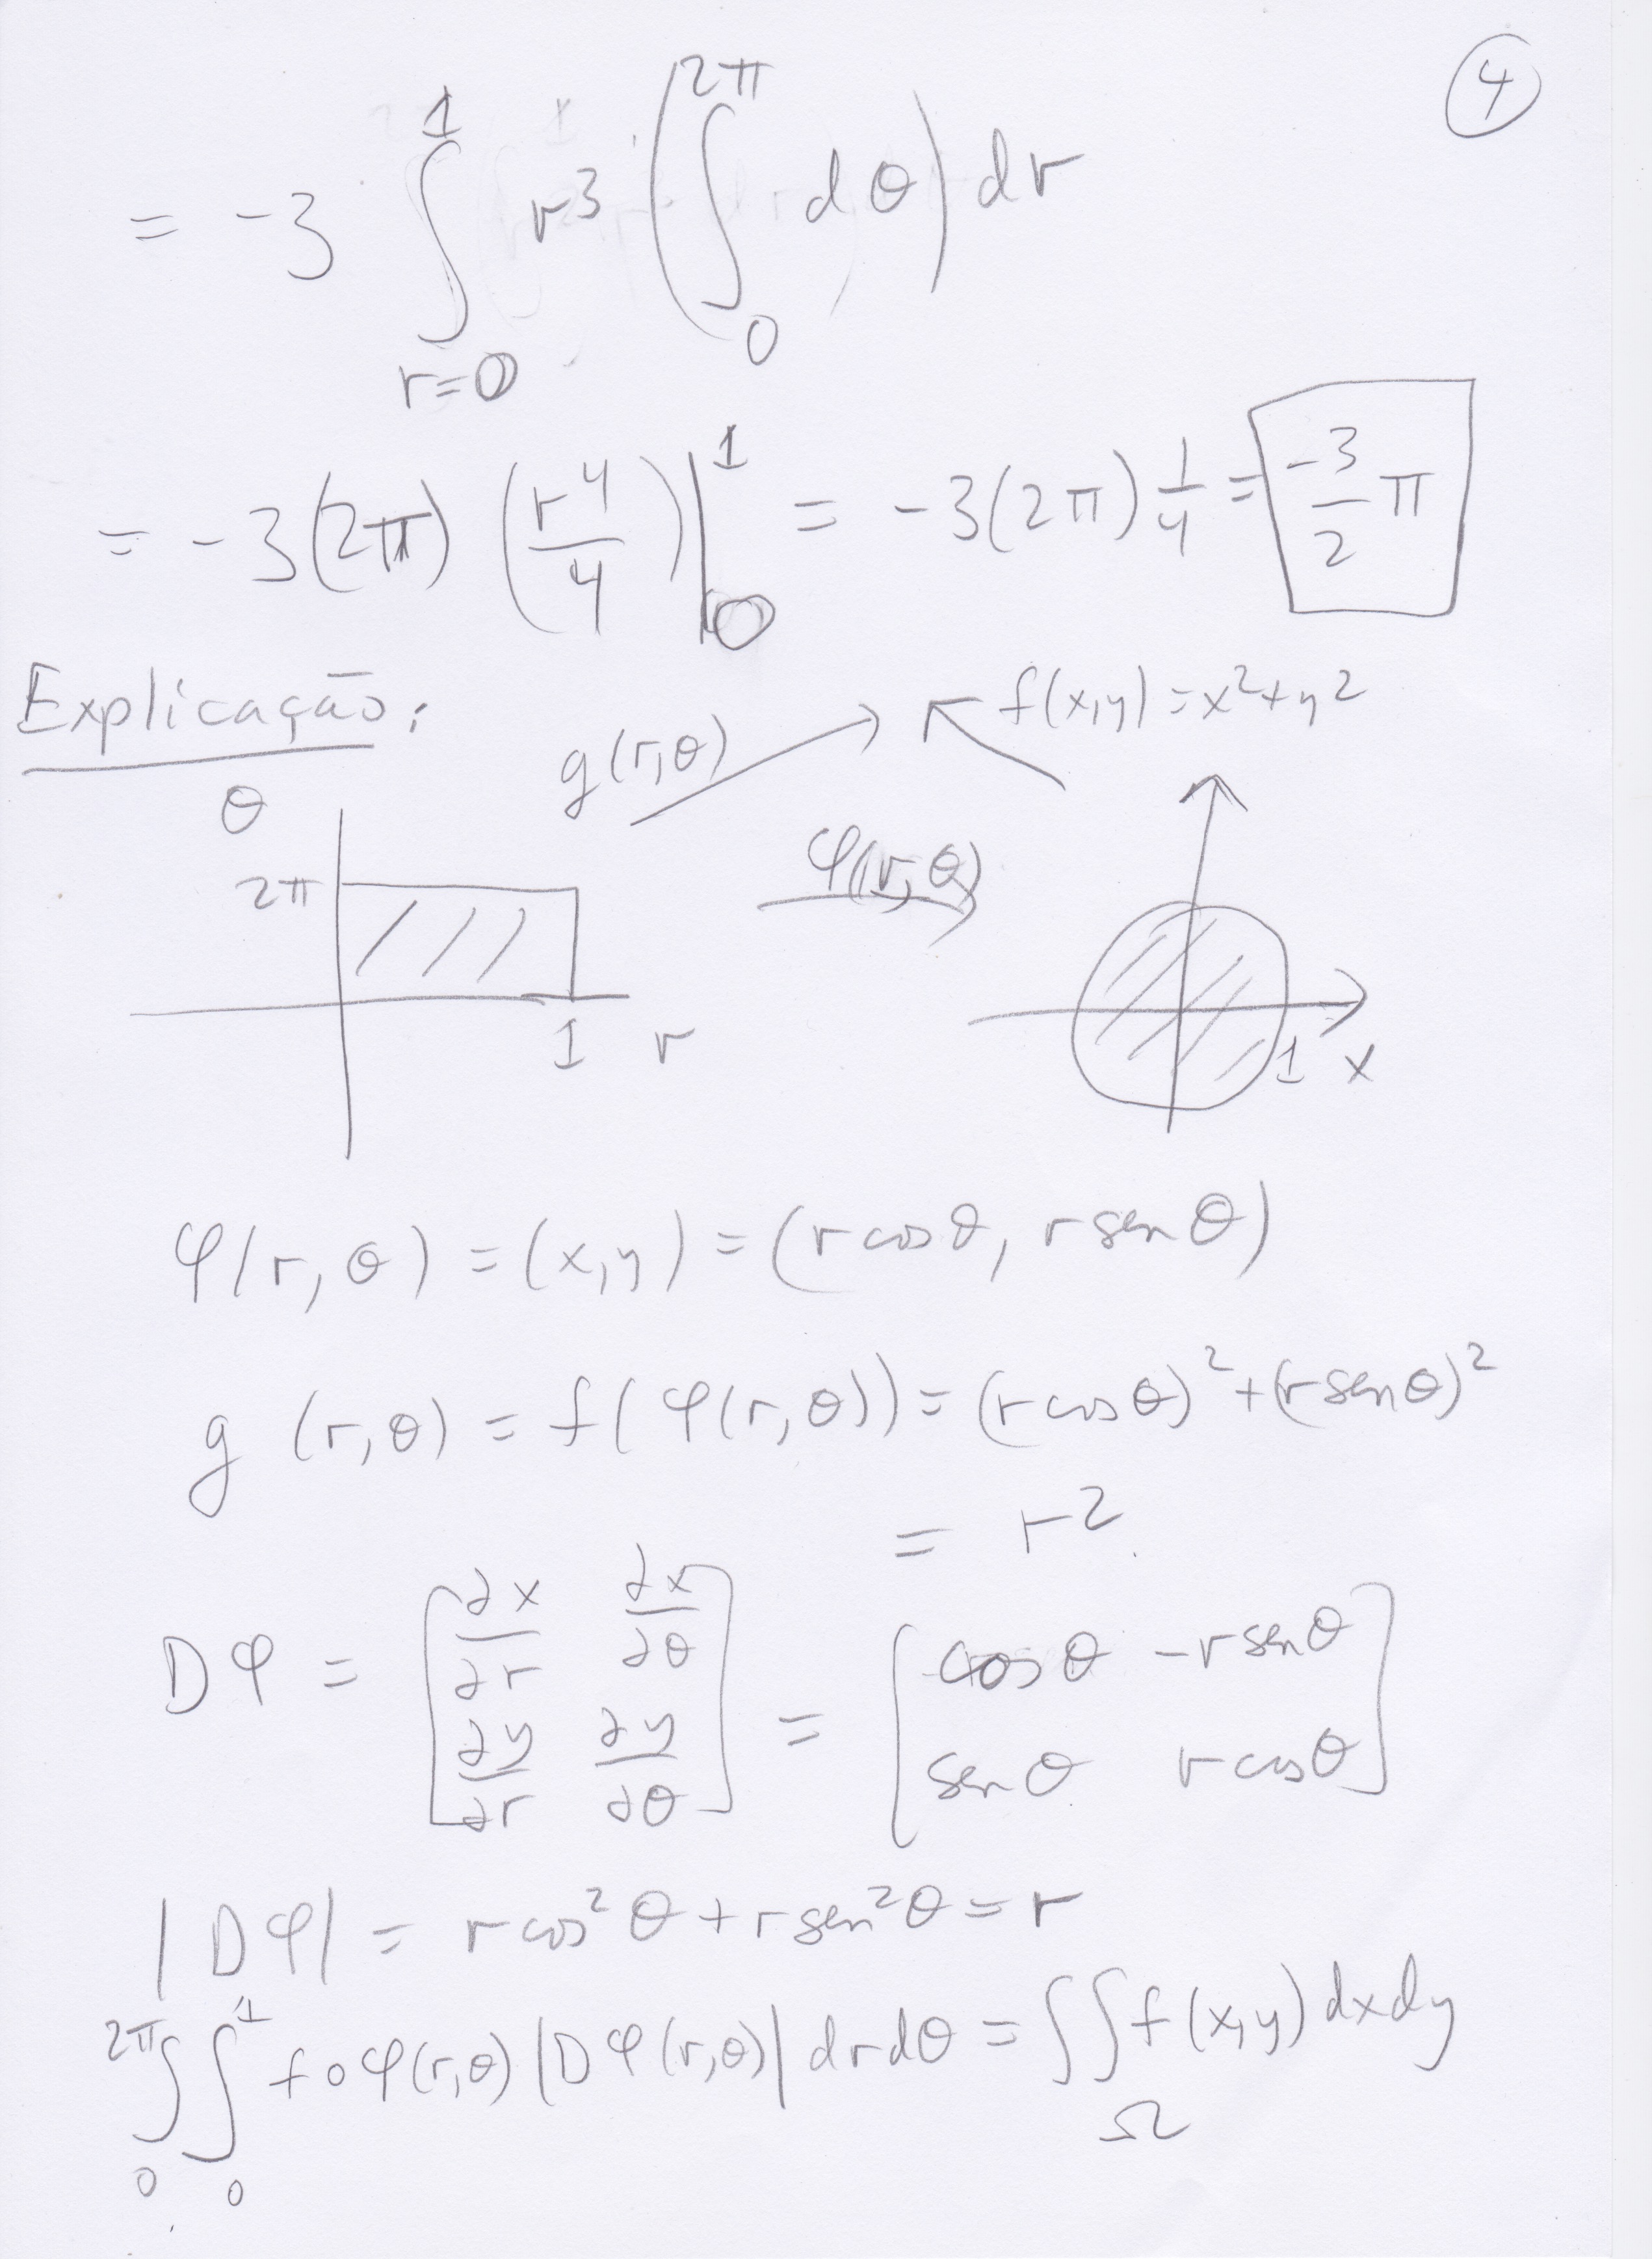 4
= -3 ∫_{r=0}^{1} r³ (∫_{0}^{2π} dθ) dr
= -3(2π) (r⁴/4)|_{0}^{1} = -3(2π) 1/4 = -3/2 π
Explicação:
g(r,θ) f(x,y) = x²+y²
θ
φ(r,θ)
2π
1 r
1 x
φ(r,θ) = (x,y) = (r cosθ, r senθ)
g(r,θ) = f(φ(r,θ)) = (r cosθ)² + (r senθ)²
= r²
Dφ = [∂x/∂r ∂x/∂θ; ∂y/∂r ∂y/∂θ] = [cosθ -r senθ; senθ r cosθ]
|Dφ| = r cos²θ + r sen²θ = r
∫_{0}^{2π} ∫_{0}^{1} f∘φ(r,θ) |Dφ(r,θ)| dr dθ = ∫∫_{Ω} f(x,y) dx dy